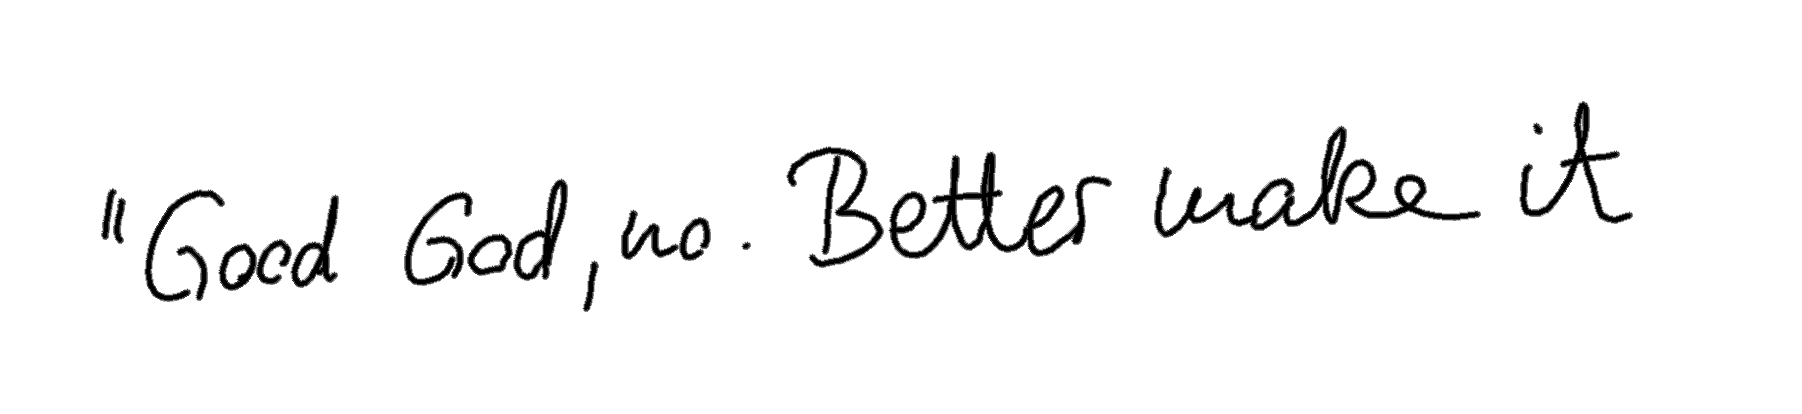 "Good God, no. Better make it